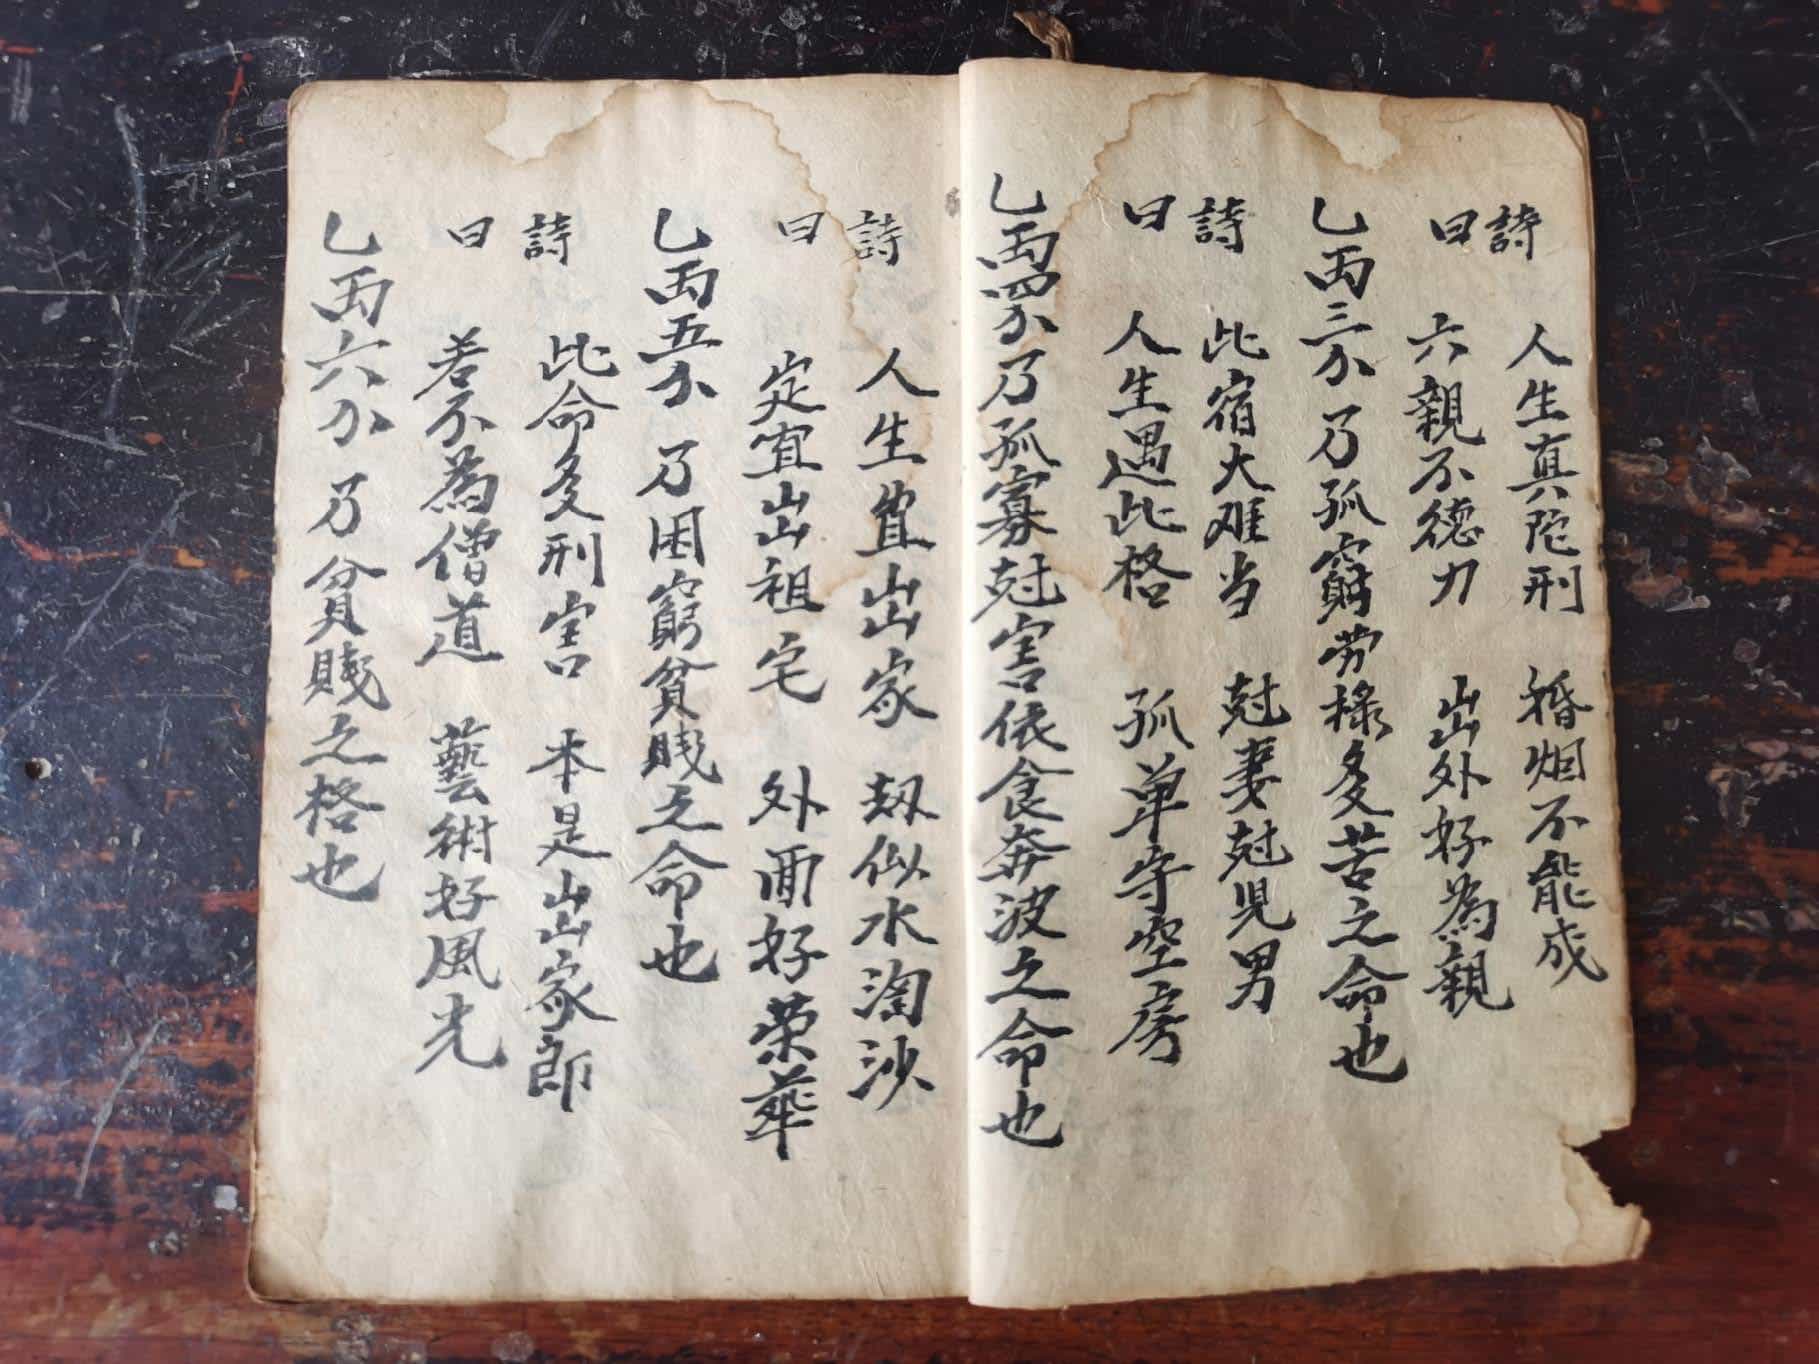 詩 人生真陀刑 婚烟不能成
曰 六親不德力 出外好為親
乙丙三分乃孤窮劳祿多苦之命也
詩 此宿大难当 尅妻尅児男
曰 人生遇此格 孤单守空房
乙丙四分乃孤寡尅害依食奔波之命也
詩 人生宜出家 刼似水淘沙
曰 定宜出祖宅 外面好荣華
乙丙五分乃困窮貧賤之命也
詩 此命多刑害 本是出家郎
曰 若不為僧道 藝術好風光
乙丙六分乃貧賤之格也